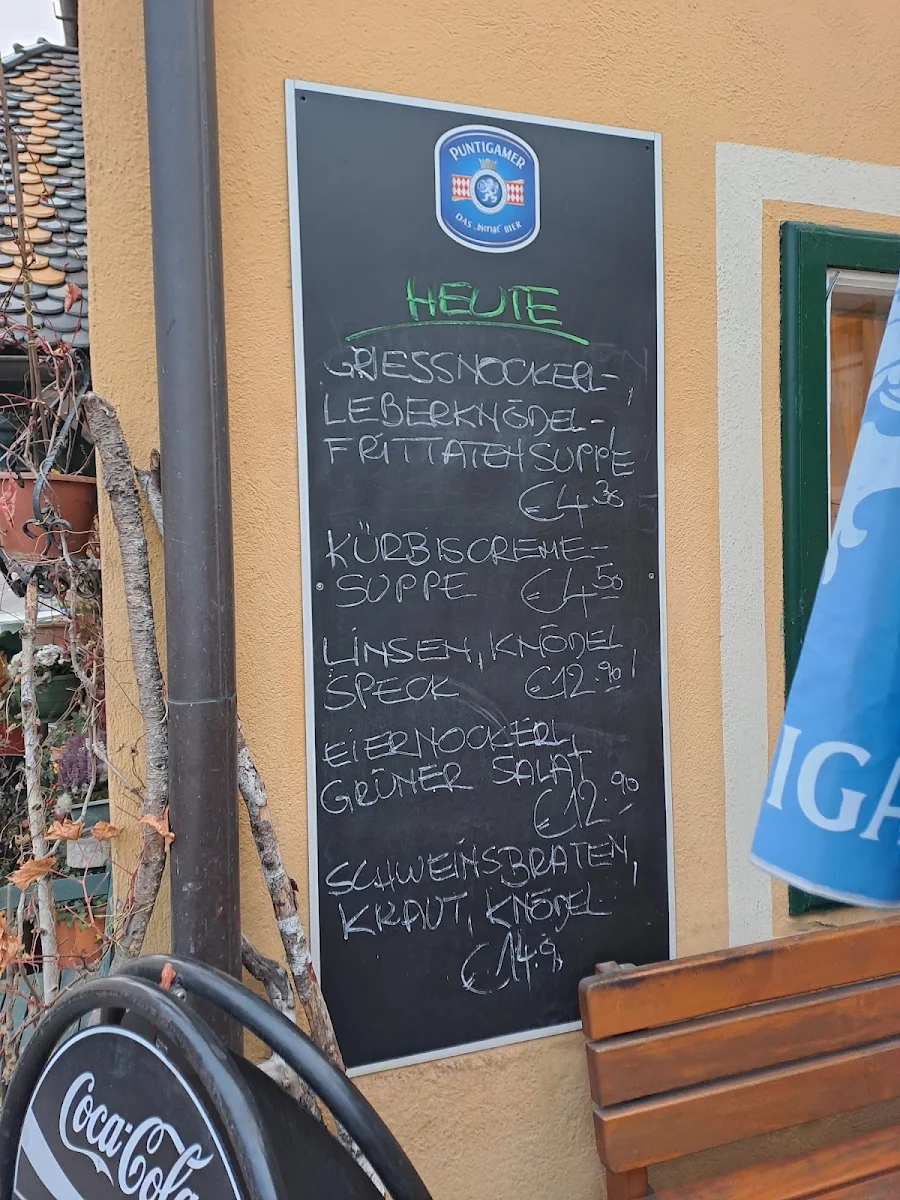 PUNTIGAMER
DAS „bierige“ BIER
HEUTE
GRIESSNOCKERL-,
LEBERKNÖDEL-
FRITTATENSUPPE
€4.30
KÜRBISCREME-
SUPPE €4.50
LINSEN, KNÖDEL,
SPECK €12.90
EIERNOCKERL,
GRÜNER SALAT
€12.90
SCHWEINSBRATEN,
KRAUT, KNÖDEL
€14.90
IGA
Coca-Cola